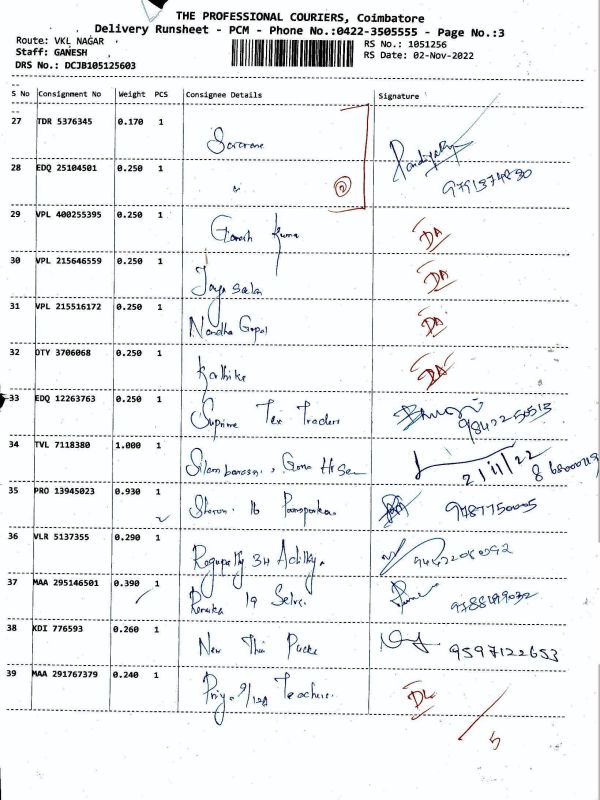 THE PROFESSIONAL COURIERS, Coimbatore
Delivery Runsheet - PCM - Phone No.:0422-3505555 - Page No.:3
Route: VKL NAGAR RS No.: 1051256
Staff: GANESH RS Date: 02-Nov-2022
DRS No.: DCJB105125603
S No Consignment No Weight PCS Consignee Details Signature
27 TDR 5376345 0.170 1
28 EDQ 25104501 0.250 1 " 2
29 VPL 400255395 0.250 1 Ganesh Kuma DA
30 VPL 215646559 0.250 1 DA
31 VPL 215516172 0.250 1 Nandha Gopal DA
32 OTY 3706068 0.250 1 Karthike DA
33 EDQ 12263763 0.250 1 Suprime Tex Traders 9842250513
34 TVL 7118380 1.000 1 21/11/22
35 PRO 13945023 0.930 1 9487750005
36 VLR 5137355 0.290 1 34
37 MAA 295146501 0.390 1 Renuka 19 Selvi.
38 KDI 776593 0.260 1 New 9597122653
39 MAA 291767379 0.240 1 Priya Teachers. DL
5